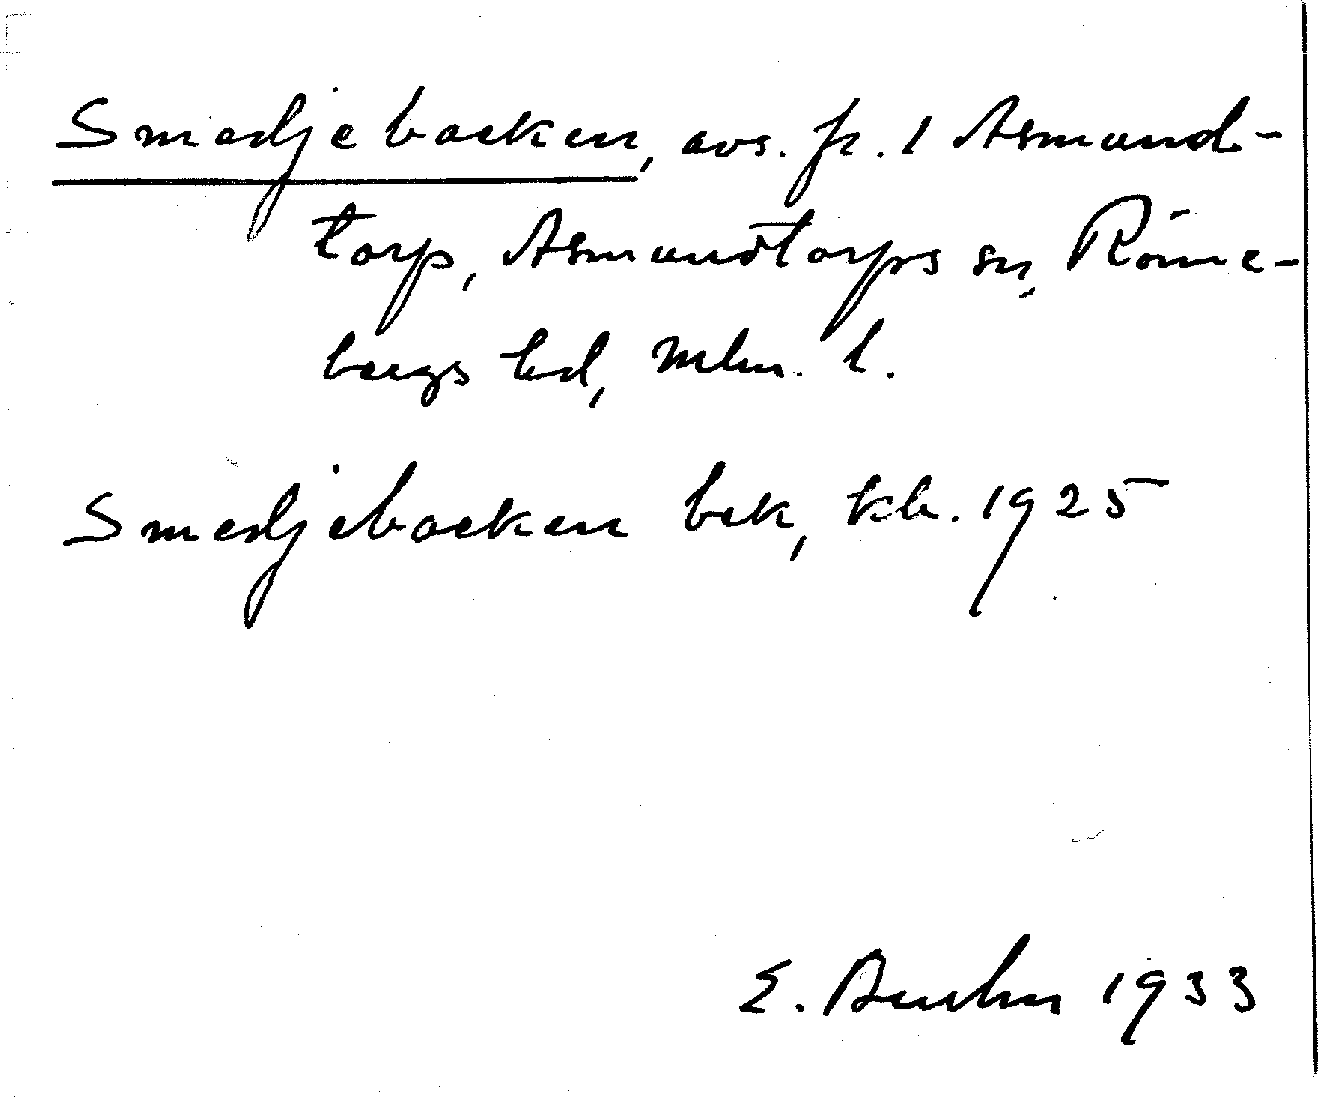 Smedjebacken, avs. fr. 1 Asmund-
torp, Asmundtorps sn, Rönne-
bergs hd, Mlm. l.
Smedjebacken bek, kb. 1925
E. 1933